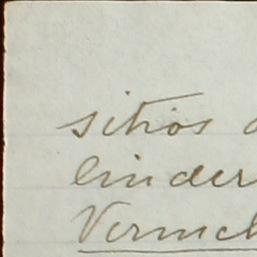 sitios
linder
Vermel